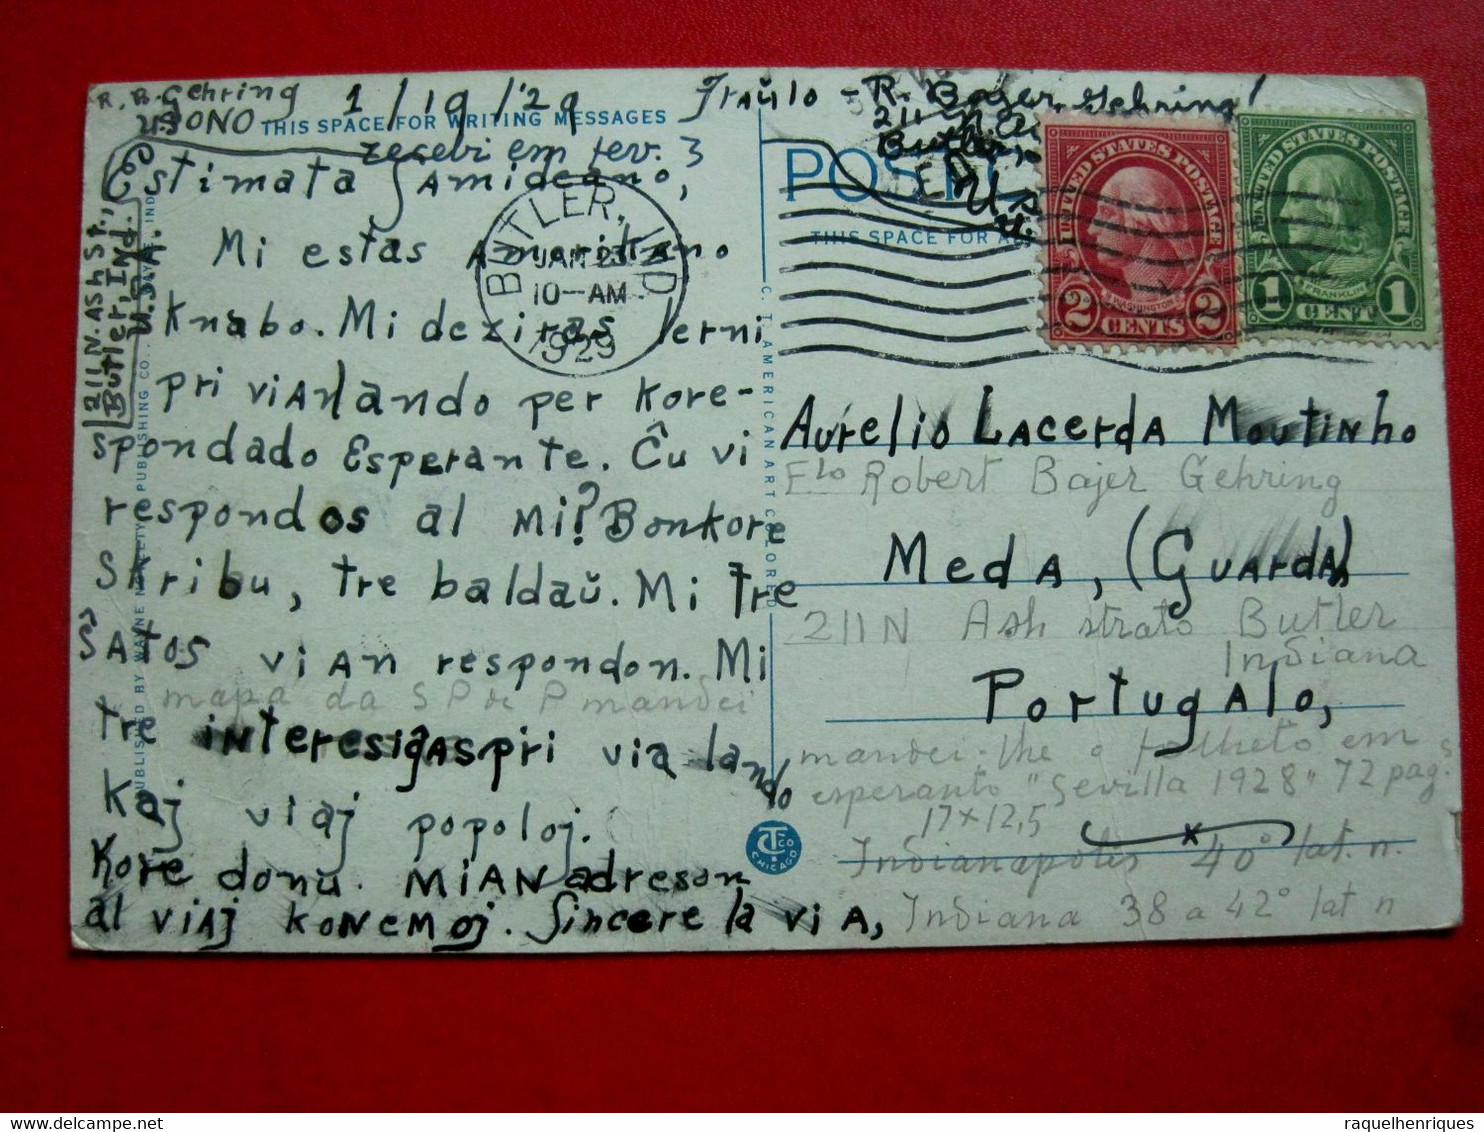 R. B. Gehring 1/19/'29
USONO THIS SPACE FOR WRITING MESSAGES
recebi em fev. 3
Estimata Samideano,
Mi estas Amerikano
Knabo. Mi deziras lerni
pri vian lando per kore-
spondado Esperante. Ĉu vi
respondos al mi? Bonkore
Skribu, tre baldaŭ. Mi tre
ŜATOS VIAN respondon. Mi
mapa da SP de P mandei
tre interesiĝas pri via lando
Kaj viaj popoloj.
Kore donu MIAN adreson
al VIAJ KONEMOJ. Sincere la VIA,
211 N. Ash St.,
Butler, Ind.
U.S.A.
BUTLER, IND.
JAN 23
10-AM
1929
PUBLISHED BY WAYNE NOVELTY PUBLISHING CO.,
C. T. AMERICAN ART COLORED
Fraŭlo - R. Bajer Gehring
211 N.
Butler,
POST
THIS SPACE FOR
UNITED STATES POSTAGE
WASHINGTON
2 CENTS 2
UNITED STATES POSTAGE
FRANKLIN
1 CENT 1
Aurelio Lacerda Moutinho
Flo Robert Bajer Gehring
MedA, (GUArdA)
211 N Ash strato Butler
Indiana
PortugAlo,
mandei-lhe o folheto em
esperanto "Sevilla 1928" 72 pag.s
17x12,5
Indianapolis 40° lat. n.
Indiana 38 a 42° lat n
CT CO
CHICAGO
raquelhenriques